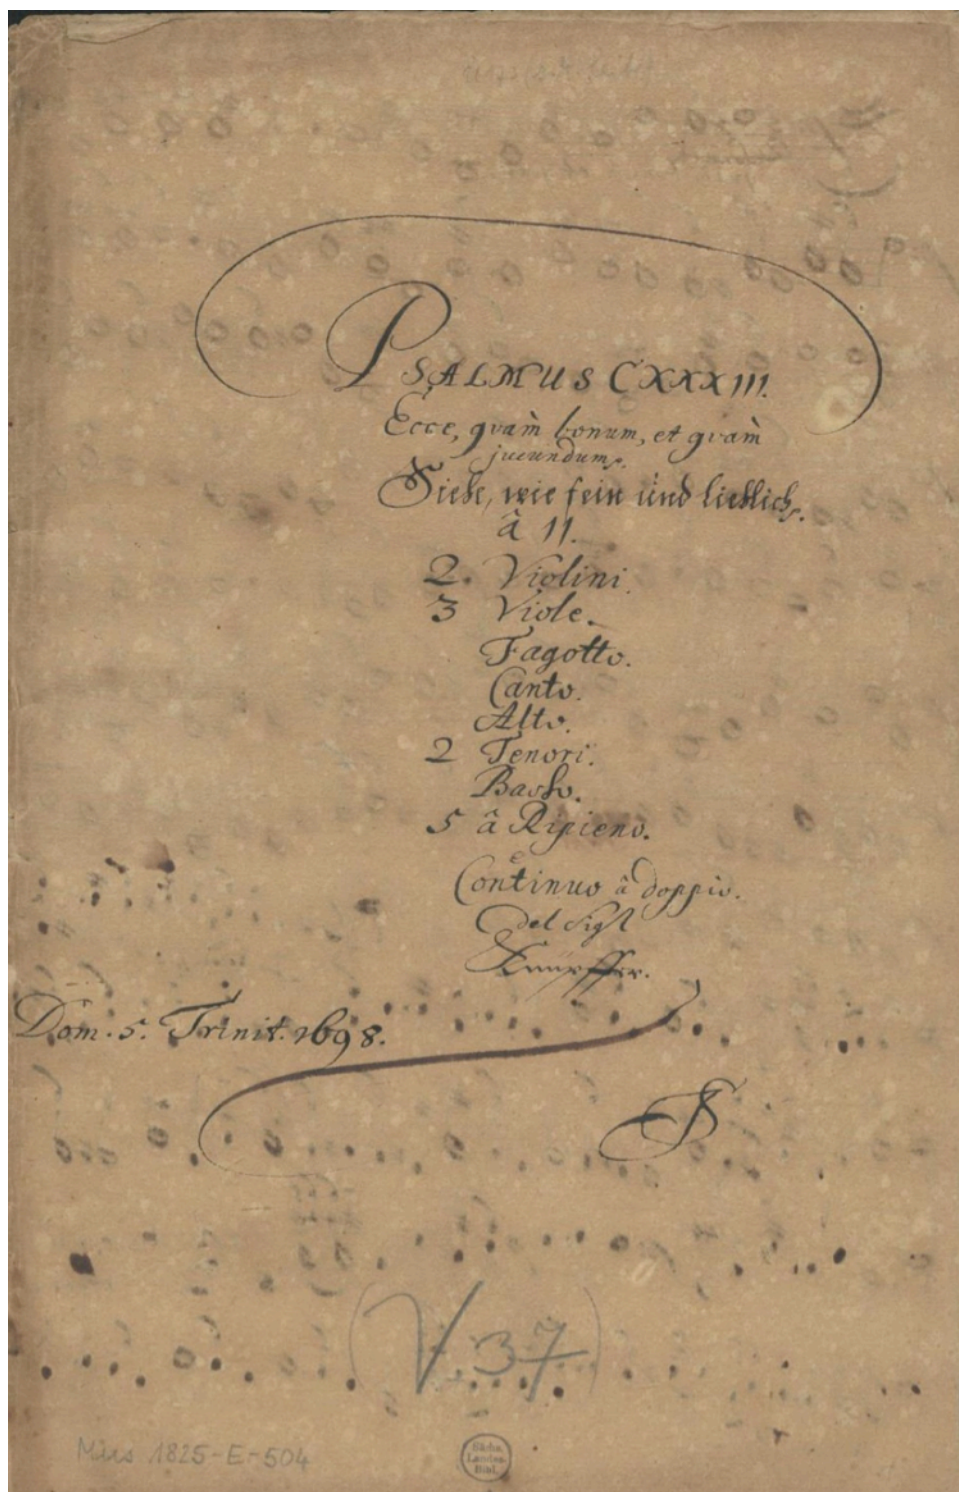 PSALMUS CXXXIII.
Ecce, qvàm bonum, et qvàm
jucundum.
Siehe, wie fein und lieblich.
â 11.
2. Violini.
3 Viole.
Fagotto.
Canto.
Alto.
2 Tenori.
Basso.
5 â Ripieno.
e
Continuo â doppio.
del Sigl
Knüpffer.
Dom. 5. Trinit. 1698.
(V. 37)
Mus 1825-E-504
Sächs.
Landes-
Bibl.